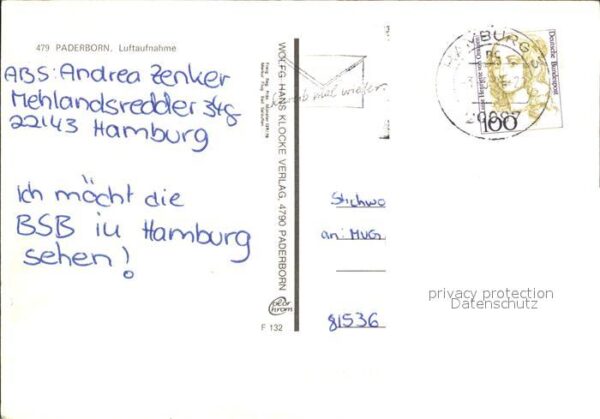 479 PADERBORN, Luftaufnahme
ABS: Andrea Zenker
Mehlandsredder 34g
22143 Hamburg
Ich möcht die
BSB in Hamburg
sehen!
WOLFG. HANS KLOCKE VERLAG, 4790 PADERBORN
F 132
mal wieder.
HAMBURG
Deutsche Bundespost
100
Stichwo
an: MUG
81536
privacy protection
Datenschutz